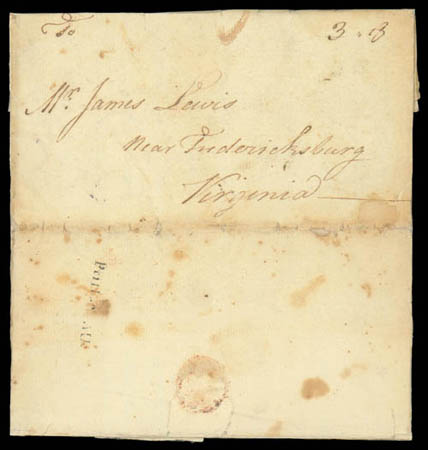 To
3..8
Mr. James Lewis
near Fredericksburg
Virginia